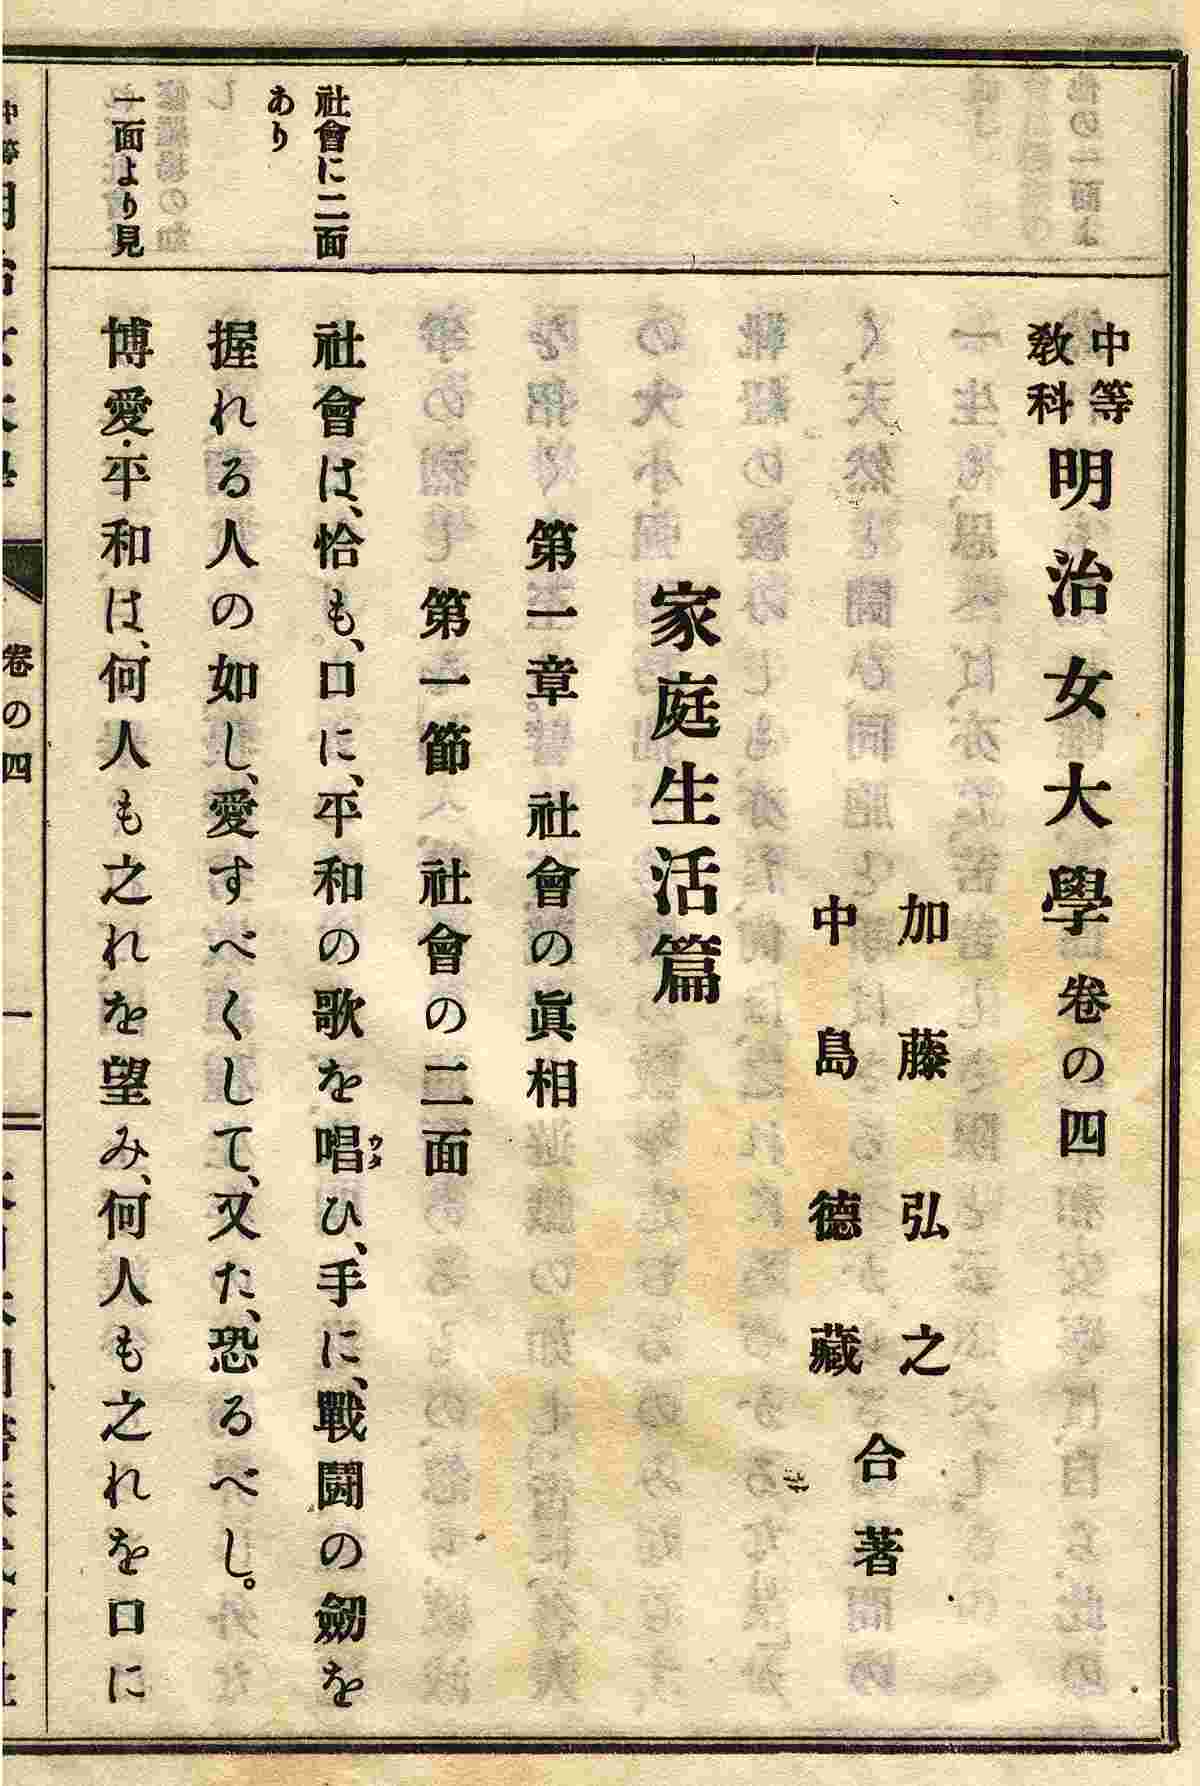 中等
教科
明治女大學卷の四
加藤弘之
中島德藏
合著
家庭生活篇
第一章 社會の眞相
第一節 社會の二面
社會に二面
あり
社會は、恰も、口に、平和の歌を唱ひ、手に、戰鬪の劒を
ウタ
握れる人の如し、愛すべくして、又た、恐るべし。
一面より見
博愛・平和は、何人も之れを望み、何人も之れを口に
卷の四
一